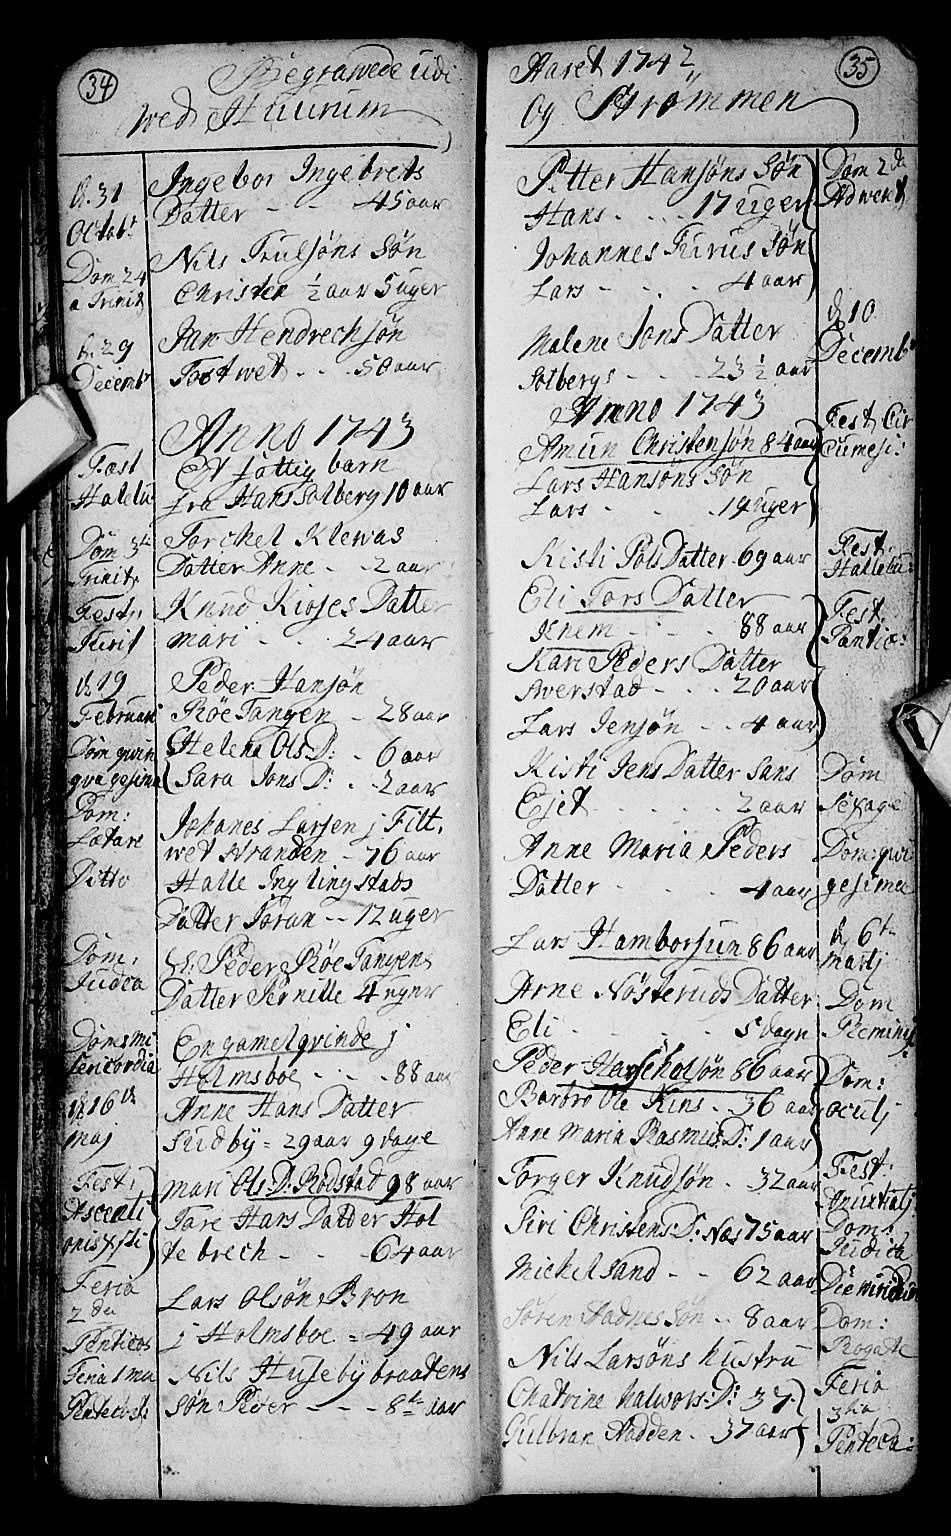 34
Begrawede udi
wed Huurum
d. 31
Octobr
Ingebor Ingebrets
Datter - - 45 aar
Dom 24
a Trinit
Nils Trulsøns Søn
Christen ½ aar 5 uger
d. 29
Decembr
Jan Hendrechsøn
Tostwet - - 50 aar
Anno 1743
Fæst
Et fattig barn
fra Hans Solberg 10 aar
Dom 3tia
Trinit
Torchel Klewas
Datter Anne - - 2 aar
Fest
Purif
Knud Kioses Datter
Mari - - 24 aar
d. 19
Februari
Peder Hansøn
Røe Tangen - 28 aar
Dom qvin
qva gesima
Helena Ols D: - 6 aar
Sara Jons D: - 2 aar
Dom:
Lætare
Johanes Larsen j Fitt,
wet Stranden - 76 aar
Ditto
Halle Inglingstads
Datter Joran - - 12 uger
Dom.
Judica
Peder Røe Tangens
Datter Pernille 4 uger
Doms mi
sericordia
En gamel qvinde j
Holmsboe - - - 88 aar
d. 16th
Maj
Anne Hans Datter
Sudby = 29 aar 9 dage
Fest:
Ascenti
onis Xsti
Mari Ols: D: Rødstad 98 aar
Tore Hans Datter Hol
te brech - - - 64 aar
Feria
2da
Penticos
Lars Olsøn Bron
j Holmsboe = 49 aar
Feria 1ma
Pentecost:
Nils Husebybraatens
Søn Peder - - - 8te aar
35
Aaret 1742
Og Strømmen
Petter Hansøns Søn
Hans - - - 17 uger
Dom 2da
Adwent
Johannes Furus Søn
Lars - - - 4 aar
Malene Jons Datter
Solbergs - - - 23 ½ aar
d. 10
Decembr
Anno 1743
Amun Christensøn 84 aar
Fest Cir
cumcis:
Lars Hansøns Søn
Lars - - - 14 uger
Kisti Pols Datter 69 aar
Fest
Eli Tors Datter
Knem - - - 88 aar
Fest.
Kari Peders Datter
Averstad - - - 20 aar
Lars Jensøn - - 4 aar
Kisti Jens Datter Sans
Ejet - - - 2 aar
Dom
Sexage
Anne Maria Peders
Datter - - - 4 aar
Dom: qvin
gesimæ
Lars Hamborsun 86 aar
d. 6te
Martj
Arne Nøsteruds Datter
Eli - - - 5 dage
Dom
Reminis
Peder 86 aar
Barbro Ole Kins - 36 aar
Anne Maria Rasmus D: 1 aar
Dom:
oculj
Torger Knudsøn - 32 aar
Fest:
Siri Christens D: Næs 75 aar
Dom:
Judica
Michel Sand - - 62 aar
Søren Stadnes Søn - - 8 aar
Dom:
Rogate
Nils Larsøns hustru
Chatrine Halwors: D: 37
Gulbran Stadden - 37 aar
Feria
3tia
Penteco: